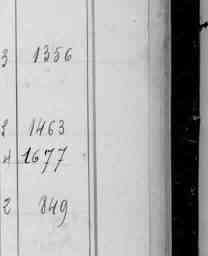 3 1356
1463
4 1677
2 849